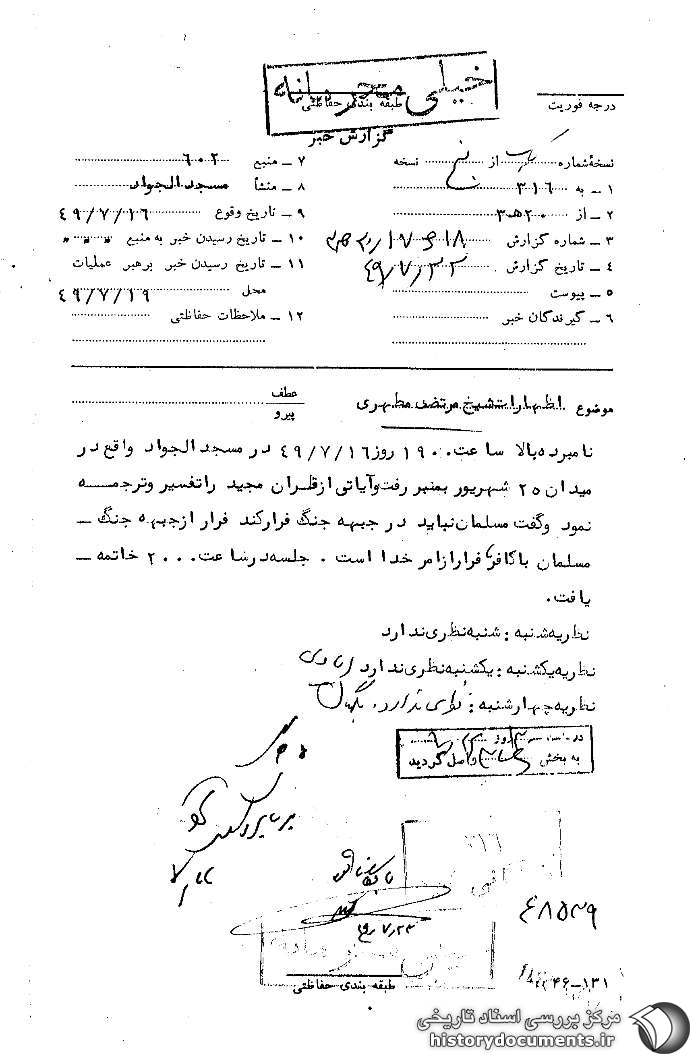 خیلی محرمانه
درجه فوریت
طبقه بندی حفاظتی
گزارش خبر
نسخهٔ شماره یک از نسخه
۷ ـ منبع ۶۰۲
۱ ـ به ۳۱۶
۸ ـ منشأ مسجد الجواد
۲ ـ از ۲۰ هـ ۳
۹ ـ تاریخ وقوع ۴۹/۷/۱۶
۳ ـ شماره گزارش
۱۰ ـ تاریخ رسیدن خبر به منبع " " "
۴ ـ تاریخ گزارش ۴۹/۷/۲۲
۱۱ ـ تاریخ رسیدن خبر برهبر عملیات
محل ۴۹/۷/۱۹
۵ ـ پیوست
۶ ـ گیرندگان خبر
۱۲ ـ ملاحظات حفاظتی
موضوع اظهارات شیخ مرتضی مطهری
عطف
پیرو
نامبرده بالا ساعت ۱۹۰۰ روز ۴۹/۷/۱۶ در مسجد الجواد واقع در
میدان ۲۵ شهریور بمنبر رفت و آیاتی از قران مجید را تفسیر و ترجمه
نمود و گفت مسلمان نباید در جبهه جنگ فرار کند فرار از جبهه جنگ ـ
مسلمان با کافر فرار از امر خدا است . جلسه در ساعت ۲۰۰۰ خاتمه ـ
یافت.
نظریه شنبه : شنبه نظری ندارد
نظریه یکشنبه : یکشنبه نظری ندارد
نظریه چهارشنبه : نظری ندارد.
روز
به بخش واصل گردید
۳۱۶
۴۹/۷/۲۳
طبقه بندی حفاظتی
۴۶-۱۳۱
مرکز بررسی اسناد تاریخی
historydocuments.ir